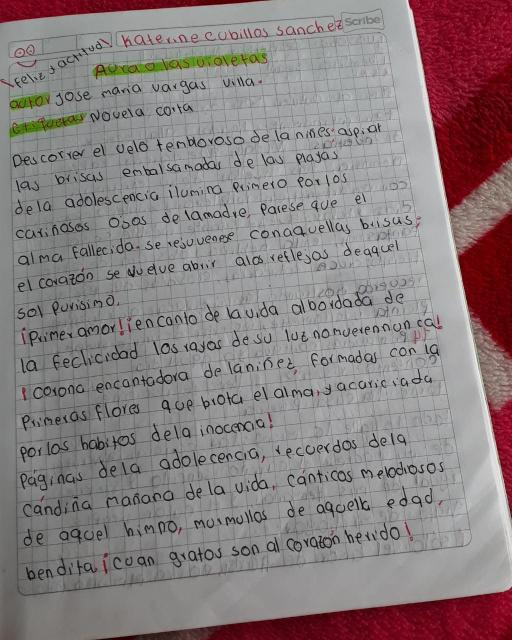 Katerine cubillos sanchez Scribe
feliz actitud
Aura o las violetas
autor Jose maria vargas villa.
Etiquetas Novela corta
Descorrer el velo tembloroso de la niñes. aspirar
las brisas embalsamadas de las Playas
de la adolescencia ilumina Primero Por los
cariñosos Ojos de la madre, Parese que el
alma fallecida. se resuvenese con aquellas brisas;
el corazón se vuelve abrir a los reflejos de aquel
sol Purisimo.
¡Primer amor!¡encanto de la vida albordada de
la feclicidad los rayos de su luz no mueren nunca!
¡corona encantadora de la niñez, formadas con la
Primeras flores que brota el alma, y acariciada
por los habitos de la inocencia!
Páginas de la adolecencia, recuerdos de la
cándiña mañana de la vida, cánticos melodiosos
de aquel himno, murmullos de aquella edad,
bendita ¡cuan gratos son al corazón herido!